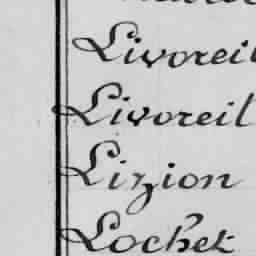 Livoreil
Livoreil
Lizion
Lochet